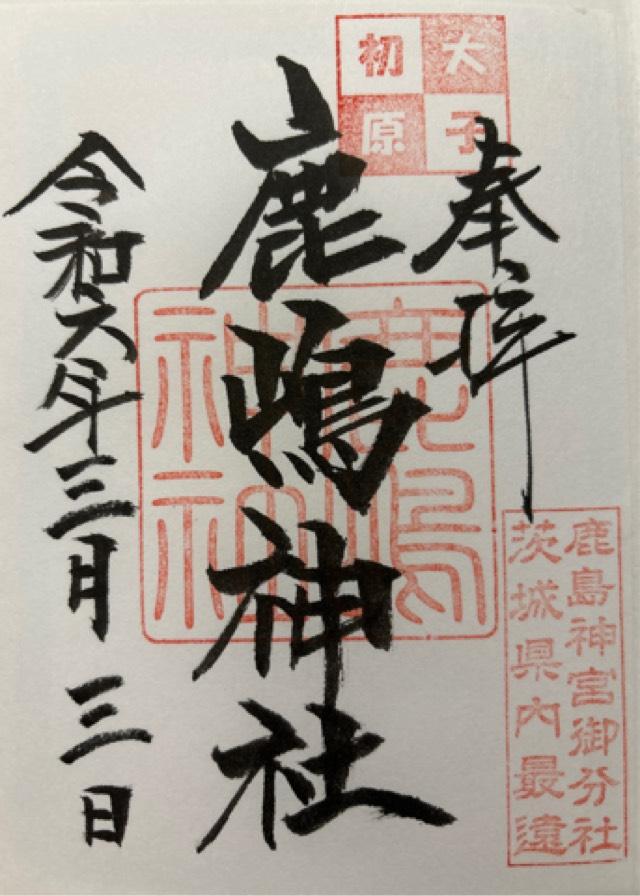 大子
初原
奉拝
鹿島神宮御分社
茨城県内最遠
鹿嶋神社
鹿嶋
神社
令和六年三月三日